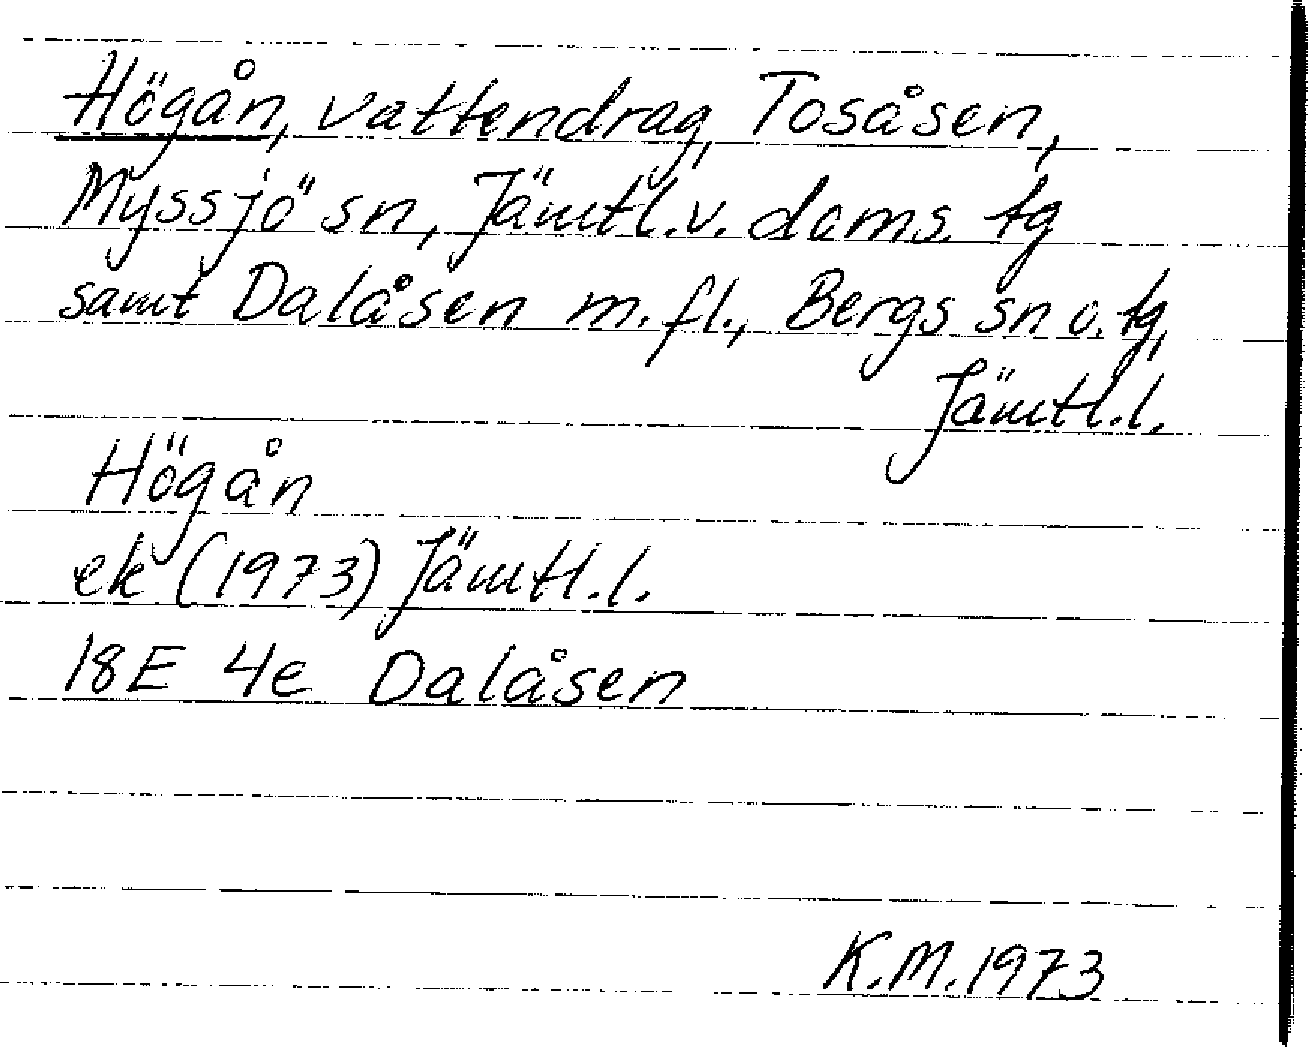 Högån, vattendrag, Tosåsen,
Myssjö sn, Jämtl.v. doms. tg
samt Dalåsen m. fl., Bergs sn o. tg,
Jämtl.l.
Högån
ek (1973) Jämtl.l.
18E 4e Dalåsen
K.M.1973